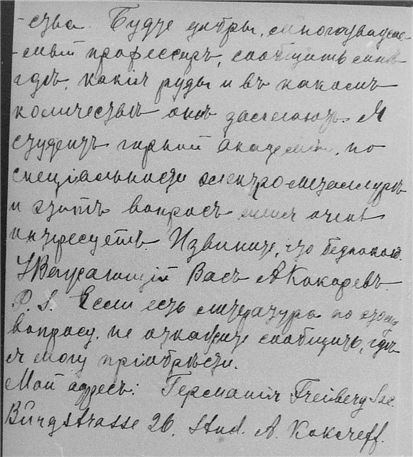 -ства. Будьте добры, многоуважае-
-мый профессоръ, сообщить мнѣ
гдѣ, какія руды и въ какомъ
количествѣ онѣ залегаютъ. Я
студентъ горной академіи, по
спеціальности электро-металлургъ
и этотъ вопросъ меня очень
интересуетъ. Извините, что безпокою.
Уважающій Васъ А Кокаревъ.
P. S. Если есть литература по этому
вопросу, не откажите сообщить, гдѣ
я могу пріобрѣсти.
Мой адресъ: Германія Freiberg Sac
Bürgstrasse 26. Stud. A. Kokareff.